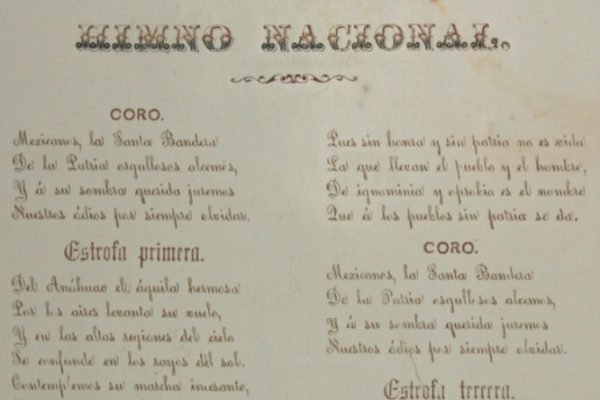 HIMNO NACIONAL.
CORO.
Mexicanos, la Santa Bandera
De la Patria orgullosos alcemos,
Y á su sombra querida juremos
Nuestros ódios por siempre olvidar.
Estrofa primera.
Del Anáhuac el águila hermosa
Por los aires levanta su vuelo,
Y en las altas regiones del cielo
Se confunde en los rayos del sol.
Contemplemos su marcha incesante,
Pues sin honra y sin patria no es vida
La que llevan el pueblo y el hombre,
De ignominia y oprobio es el nombre
Que á los pueblos sin patria se da.
CORO.
Mexicanos, la Santa Bandera
De la Patria orgullosos alcemos,
Y á su sombra querida juremos
Nuestros ódios por siempre olvidar.
Estrofa tercera.